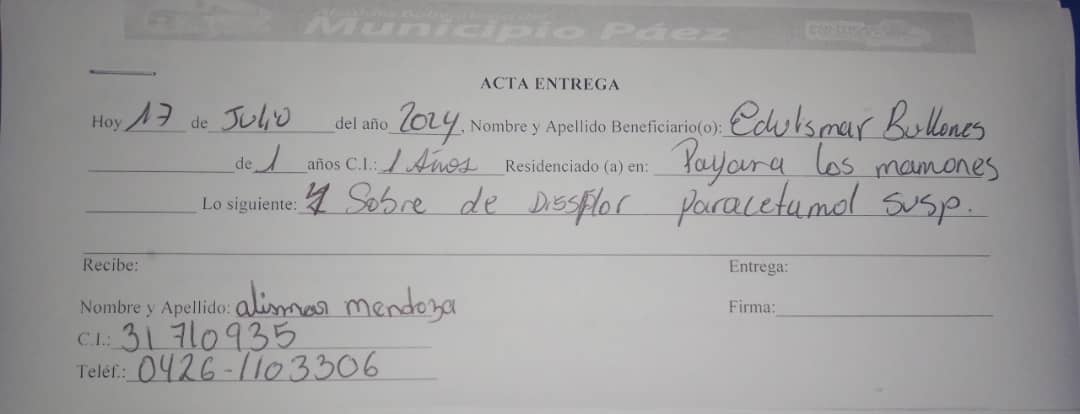 Municipio Páez
ACTA ENTREGA
Hoy 17 de Julio del año 2024, Nombre y Apellido Beneficiario(o): Edulsmar Bullones
de 1 años C.I.: 1 Años Residenciado (a) en: Payara los mamones
Lo siguiente: Sobre de paracetamol susp.
Recibe: Entrega:
Nombre y Apellido: alismar mendoza Firma:
C.I.: 31 710935
Teléf.: 0426-1103306